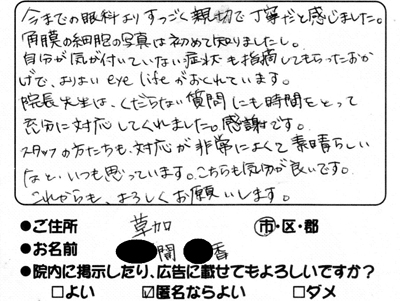 今までの眼科よりすっごく親切で丁寧だと感じました。
角膜の細胞の写真は初めて知りましたし。
自分が気が付いていない症状も指摘してもらったおか
げで、よりよいeye lifeがおくれています。
院長先生は、くだらない質問にも時間をとって
充分に対応してくれました。感謝です。
スタッフの方たちも対応が非常によくて素晴らしい
なといつも思っています。こちらも気分が良いです。
これからも、よろしくお願いします。
●ご住所 草加 市・区・郡
●お名前 間 香
●院内に掲示したり、広告に載せてもよろしいですか?
□よい ☑匿名ならよい □ダメ